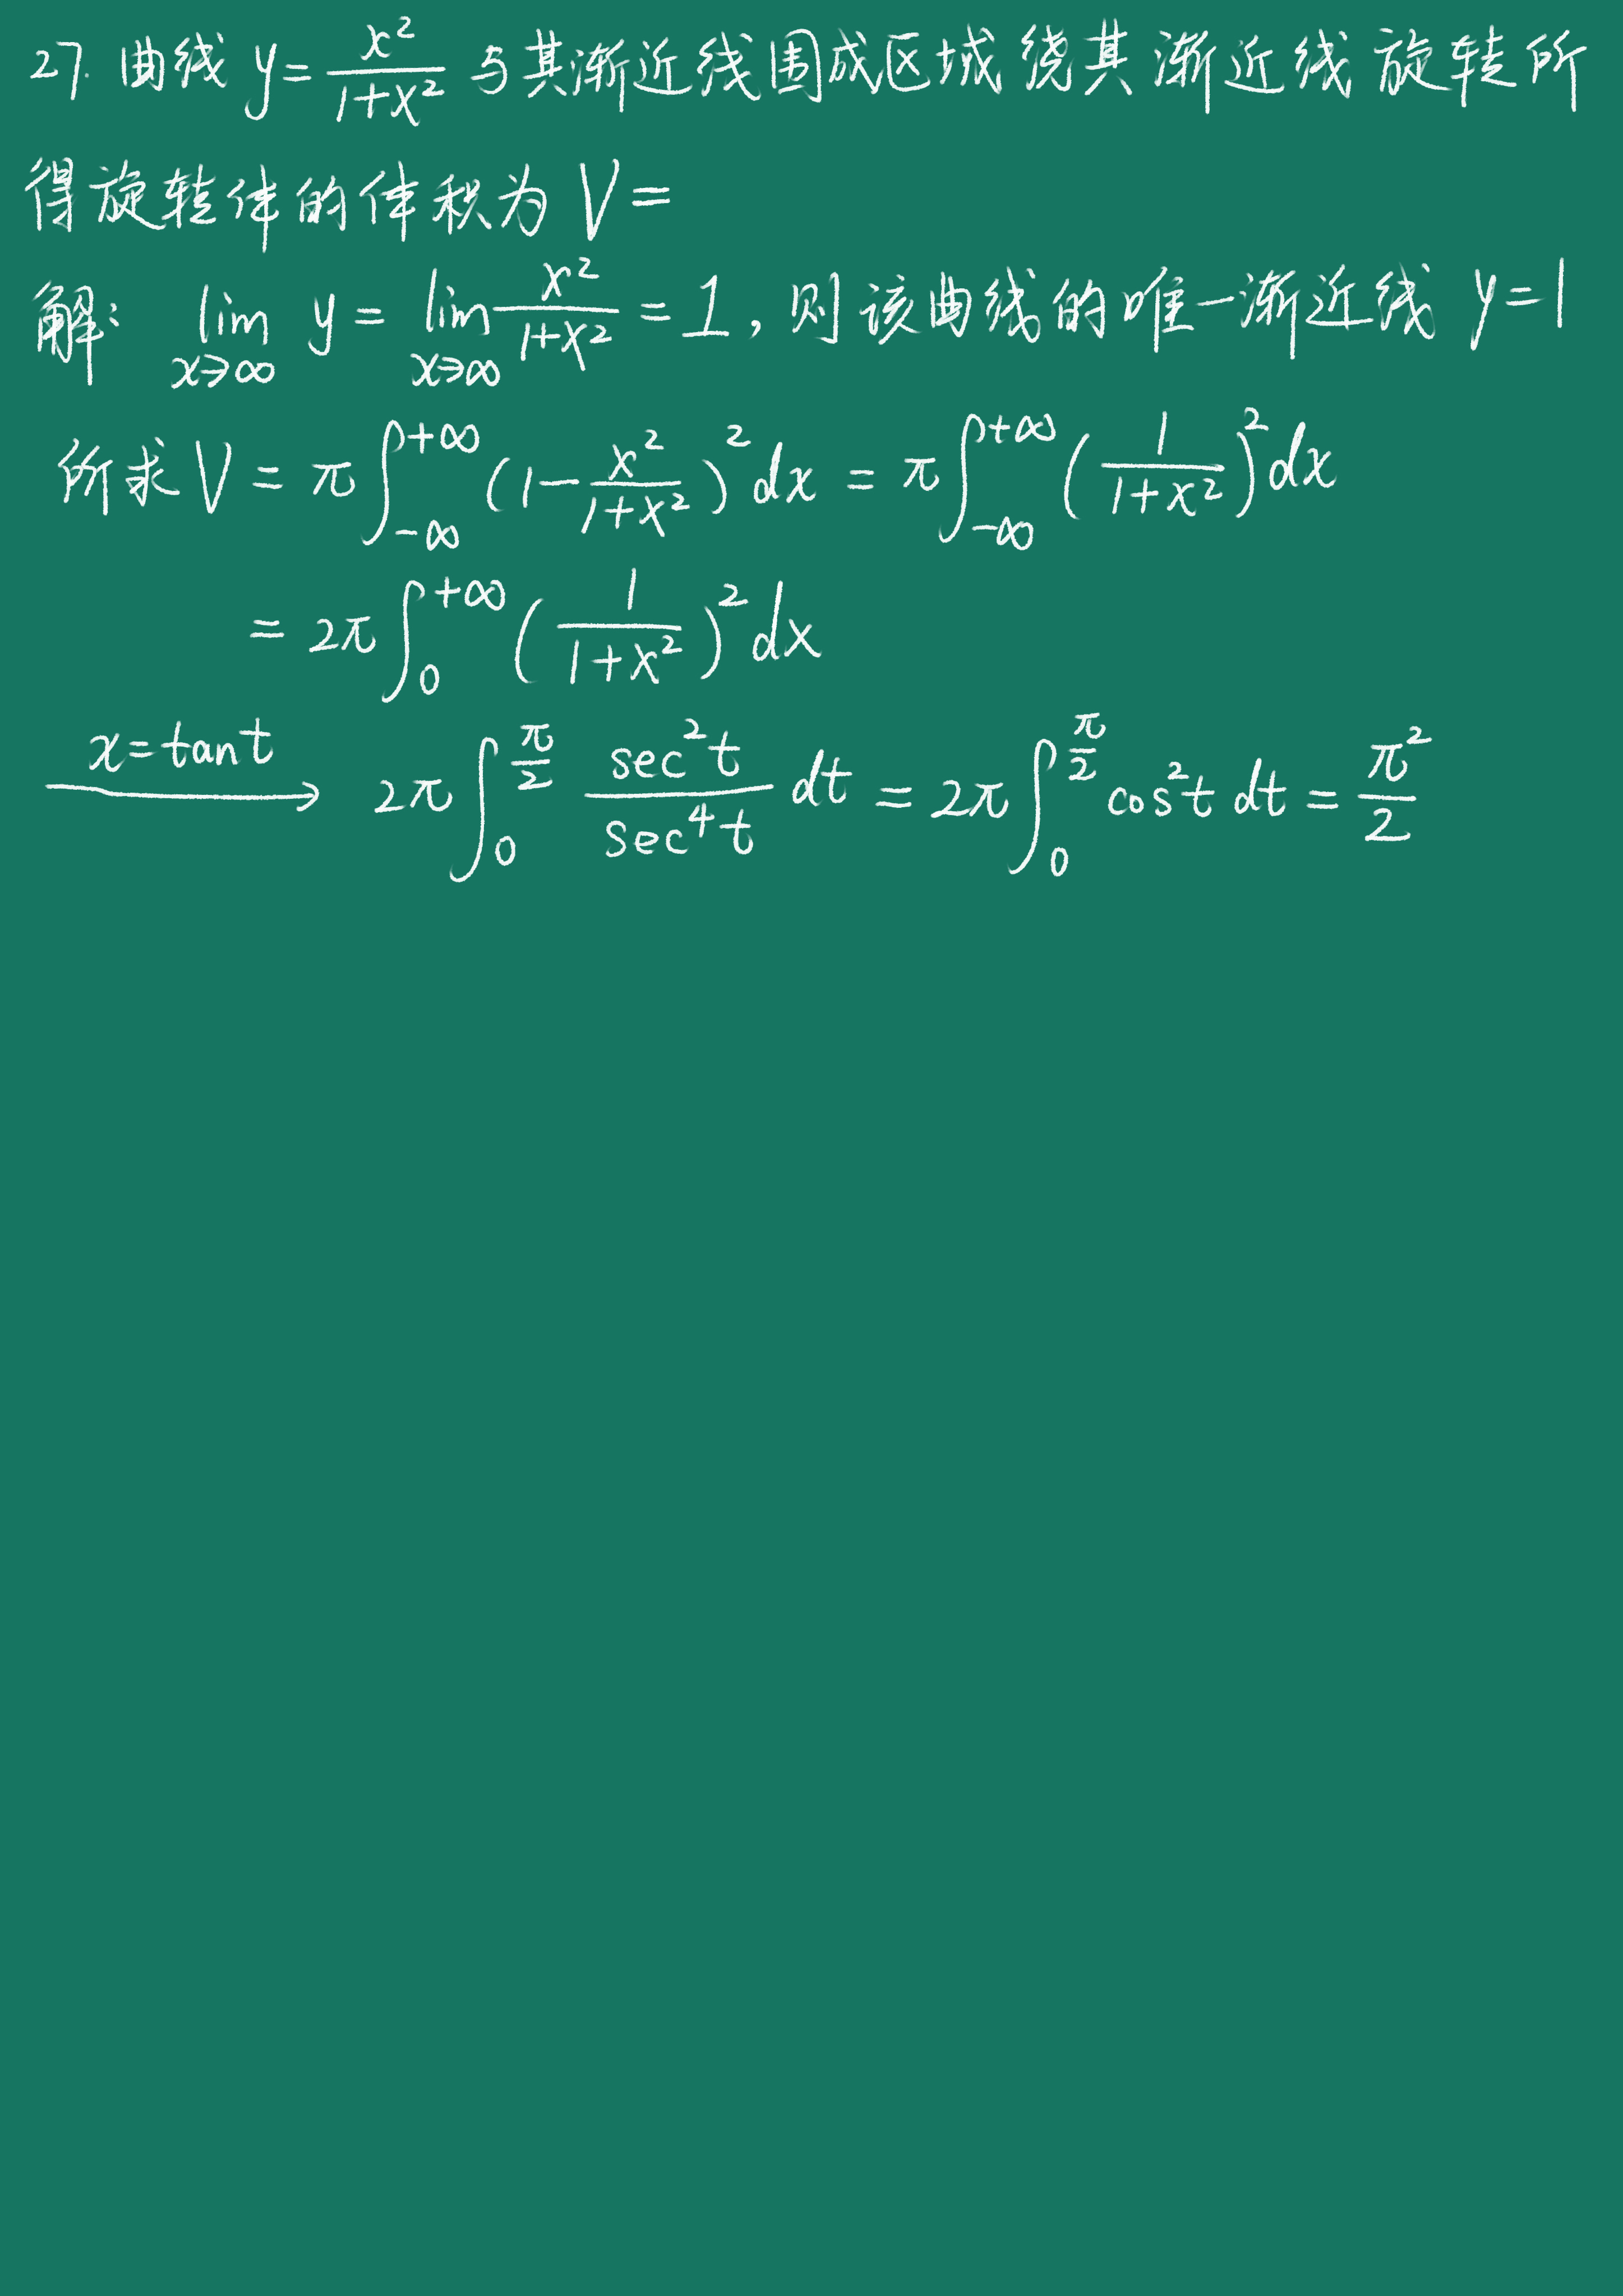 27. 曲线 y = \frac{x^2}{1+x^2} 与其渐近线围成区域绕其渐近线旋转所
得旋转体的体积为 V =
解: \lim_{x→∞} y = \lim_{x→∞} \frac{x^2}{1+x^2} = 1, 则该曲线的唯一渐近线 y=1
所求 V = π∫_{-∞}^{+∞} (1-\frac{x^2}{1+x^2})^2 dx = π∫_{-∞}^{+∞} (\frac{1}{1+x^2})^2 dx
= 2π∫_{0}^{+∞} (\frac{1}{1+x^2})^2 dx
\xrightarrow{x=tant} 2π∫_{0}^{\frac{π}{2}} \frac{sec^2 t}{sec^4 t} dt = 2π∫_{0}^{\frac{π}{2}} cos^2 t dt = \frac{π^2}{2}